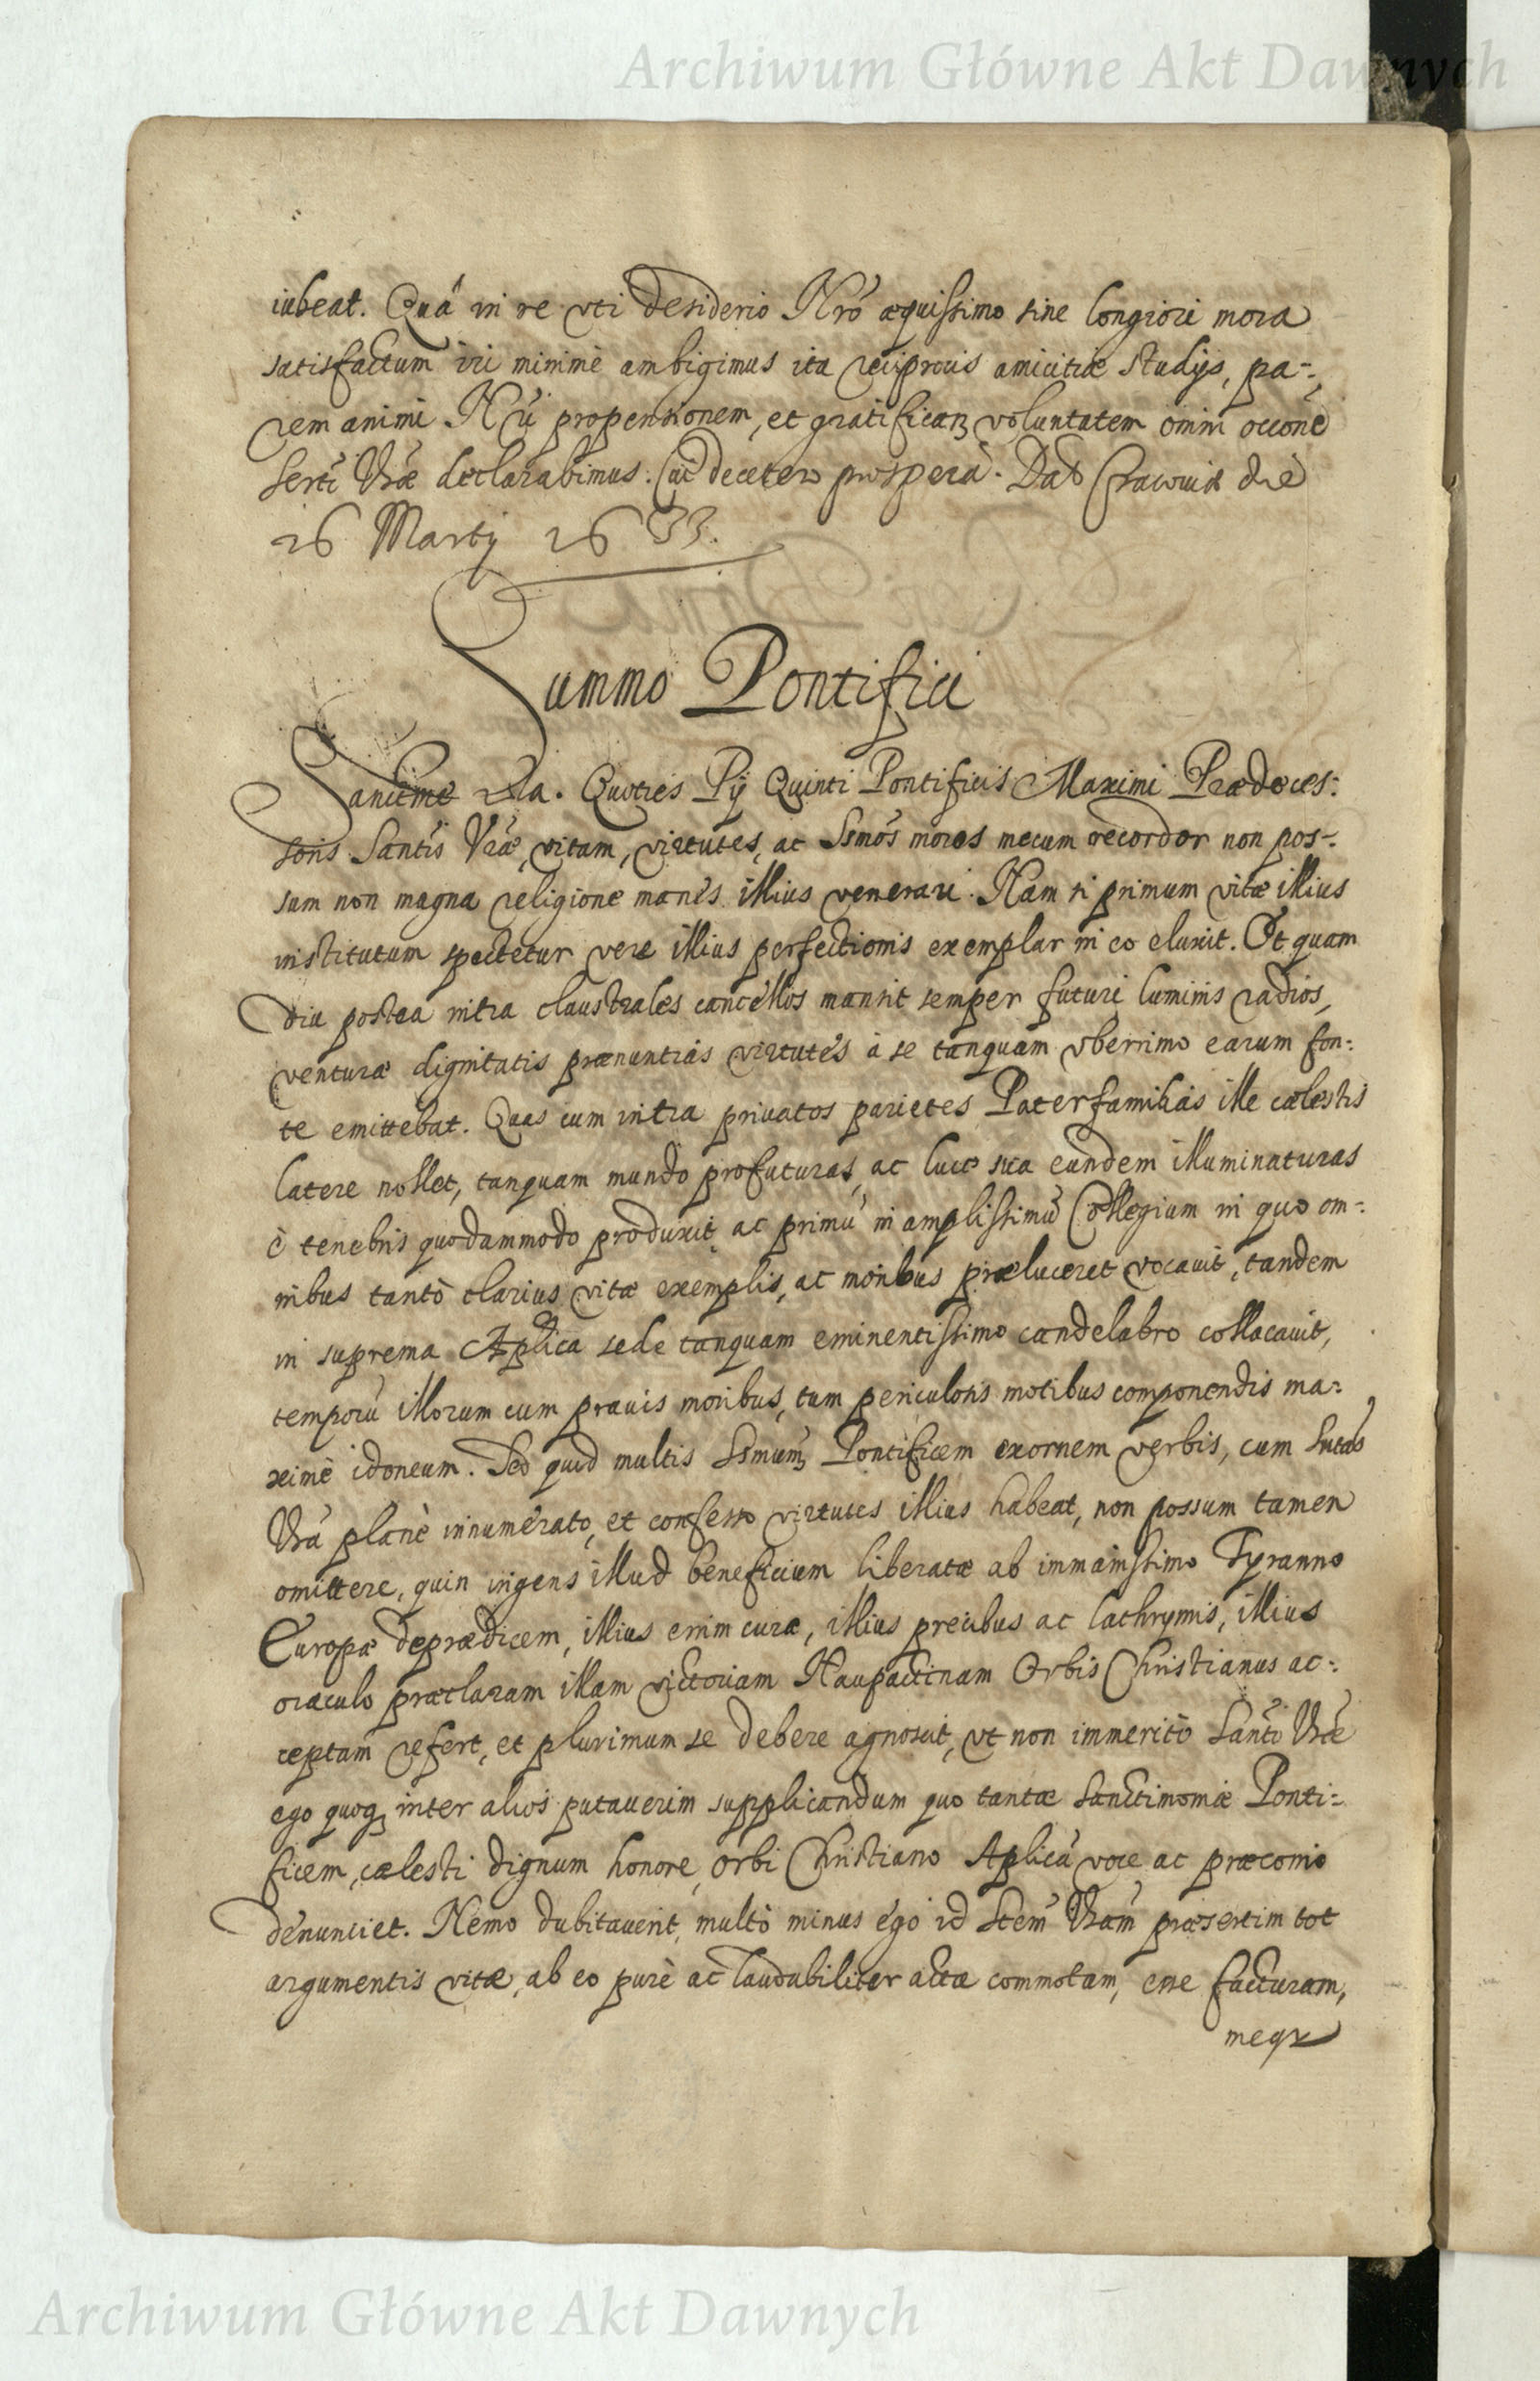 Archiwum Główne Akt Dawnych
iubeat. Quá in re vti desiderio Nró æquissimo sine longiori mora
satisfactum iri minimè ambigimus ita reciprocis amicitiæ studijs, pa-
rem animi Nri propensionem, et gratificanȝ voluntatem omni occone
Serti Vræ declarabimus. Cui de cetero prospera. Dat Cracoviæ die
26 Martij 1633.
Summo Pontifici
Sanctme Pla. Quoties Pij Quinti Pontificis Maximi Prædeces:
soris Santis Vræ, vitam, virtutes, ac Ssmos mores mecum recordor non pos-
sum non magna religione manes illius venerari. Nam si primum vitæ illius
institutum spectetur vere illius perfectionis exemplar in eo eluxit. Et quam
diu postea intra claustrales cancellos mansit semper futuri luminis radios,
venturæ dignitatis prænuntias virtutes à se tanquam vberrimo earum fon:
te emittebat. Quas cum intra priuatos parietes Paterfamilias ille cælestis
latere nollet, tanquam mundo profuturas, ac luce sua eundem illuminaturas
è tenebris quodammodo produxit, ac primú in amplissimú Collegium in quo om:
nibus tantò clarius vitæ exemplis, ac moribus præluceret vocauit, tandem
in suprema Aplica sede tanquam eminentissimo candelabro collacauit,
temporú illorum cum prauis moribus, tum periculosis motibus componendis ma:
ximè idoneum. Sed quid multis Ssmumȝ Pontificem exornem verbis, cum Sntas
Vrá planè innumerato, et confesso virtutes illius habeat, non possum tamen
omittere, quin ingens illud beneficium liberatæ ab immanissimo Tyranno
Europæ deprædicem, illius enim curæ, illius precibus ac lachrymis, illius
oraculo præclaram illam victoriam Naupactinam Orbis Christianus ac:
ceptam refert, et plurimum se debere agnoscit, vt non immeritò Santi Vræ
ego quoqȝ inter alios putauerim supplicandum quo tantæ sanctimoniæ Ponti:
ficem, cælesti dignum honore, orbi Christiano Aplicá voce ac præconio
denunciet. Nemo dubitauerit, multò minus ego id Stem Vram præsertim tot
argumentis vitæ, ab eo purè ac laudabiliter actæ commotam, esse facturam,
meqȝ
Archiwum Główne Akt Dawnych